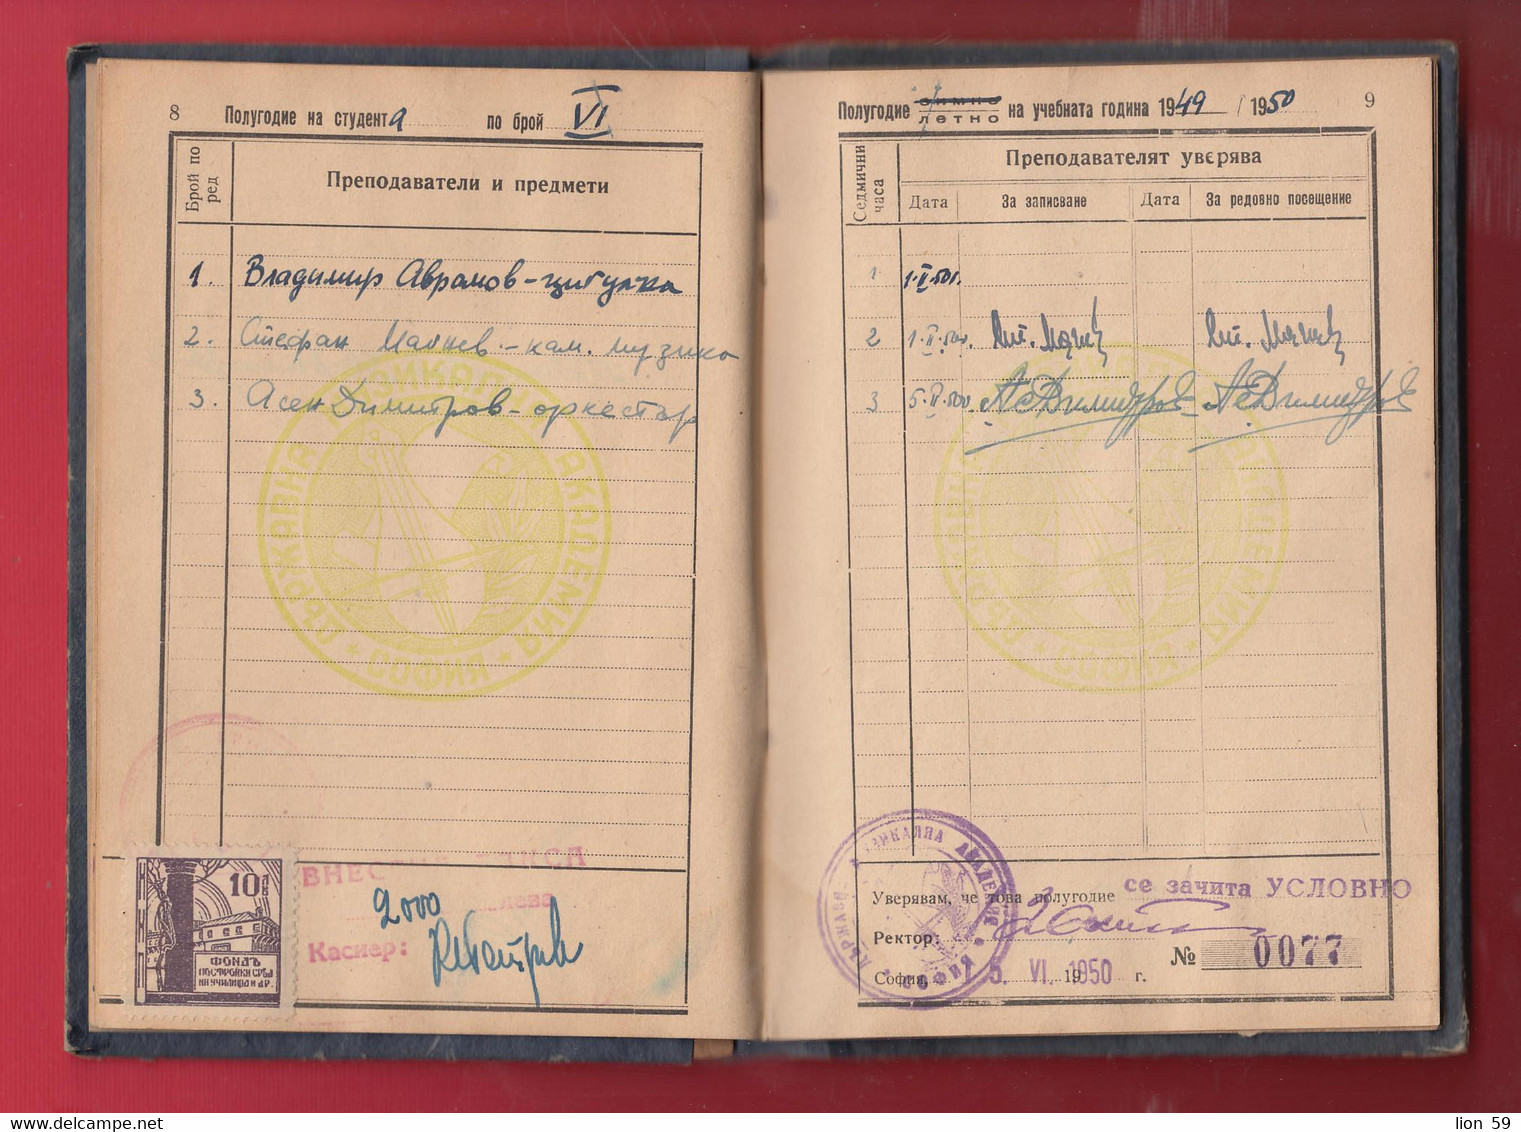 8 Полугодие на студента по брой VI
Брой по ред
Преподаватели и предмети
1. Владимир Аврамов - цигулка
2. Стефан Магнев - кам. музика
3. Асен Димитров - оркестър
ДЪРЖАВНА МУЗИКАЛНА АКАДЕМИЯ * СОФИЯ *
10
ФОНДЪ
ПОСТРОЙКИ СРѢД
НИ УЧИЛИЩА И ДР.
ВНЕС
2000 лева
Касиер:
Полугодие зимно летно на учебната година 1949 / 1950 9
Седмични часа
Преподавателят уверява
Дата За записване Дата За редовно посещение
1 1.II.50г.
2 1.II.50г.
3 5.II.50г. Ас. Димитров Ас. Димитров
ДЪРЖАВНА МУЗИКАЛНА АКАДЕМИЯ * СОФИЯ *
Уверявам, че това полугодие се зачита УСЛОВНО
Ректор:
София, 5. VI. 1950 г.
№ 0077
lion 59